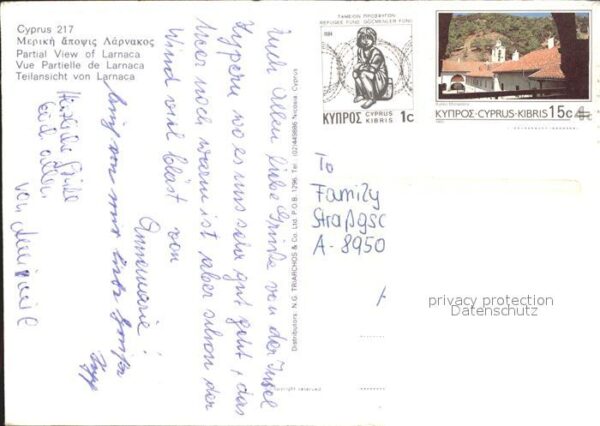 Cyprus 217
Μερική ἄποψις Λάρνακος
Partial View of Larnaca
Vue Partielle de Larnaca
Teilansicht von Larnaca
ΤΑΜΕΙΟΝ ΠΡΟΣΦΥΓΩΝ
REFUGEE FUND GÖÇMENLER FONU
1984
ΚΥΠΡΟΣ CYPRUS KIBRIS 1c
ΚΥΠΡΟΣ-CYPRUS-KIBRIS 15c
Euch Allen liebe Grüße von der Insel
Zypern, wo es uns sehr gut geht, das
Meer noch warm ist aber schon der
Wind viel bläst von
Annemarie!
Herzliche Grüße
Euch allen
von
Distributors: N.G. TRIARCHOS & Co. Ltd. P.O.B. 1296, Tel. (02)449886 Nicosia, Cyprus
Copyright reserved
To
Family
Straßgsc
A-8950
privacy protection
Datenschutz